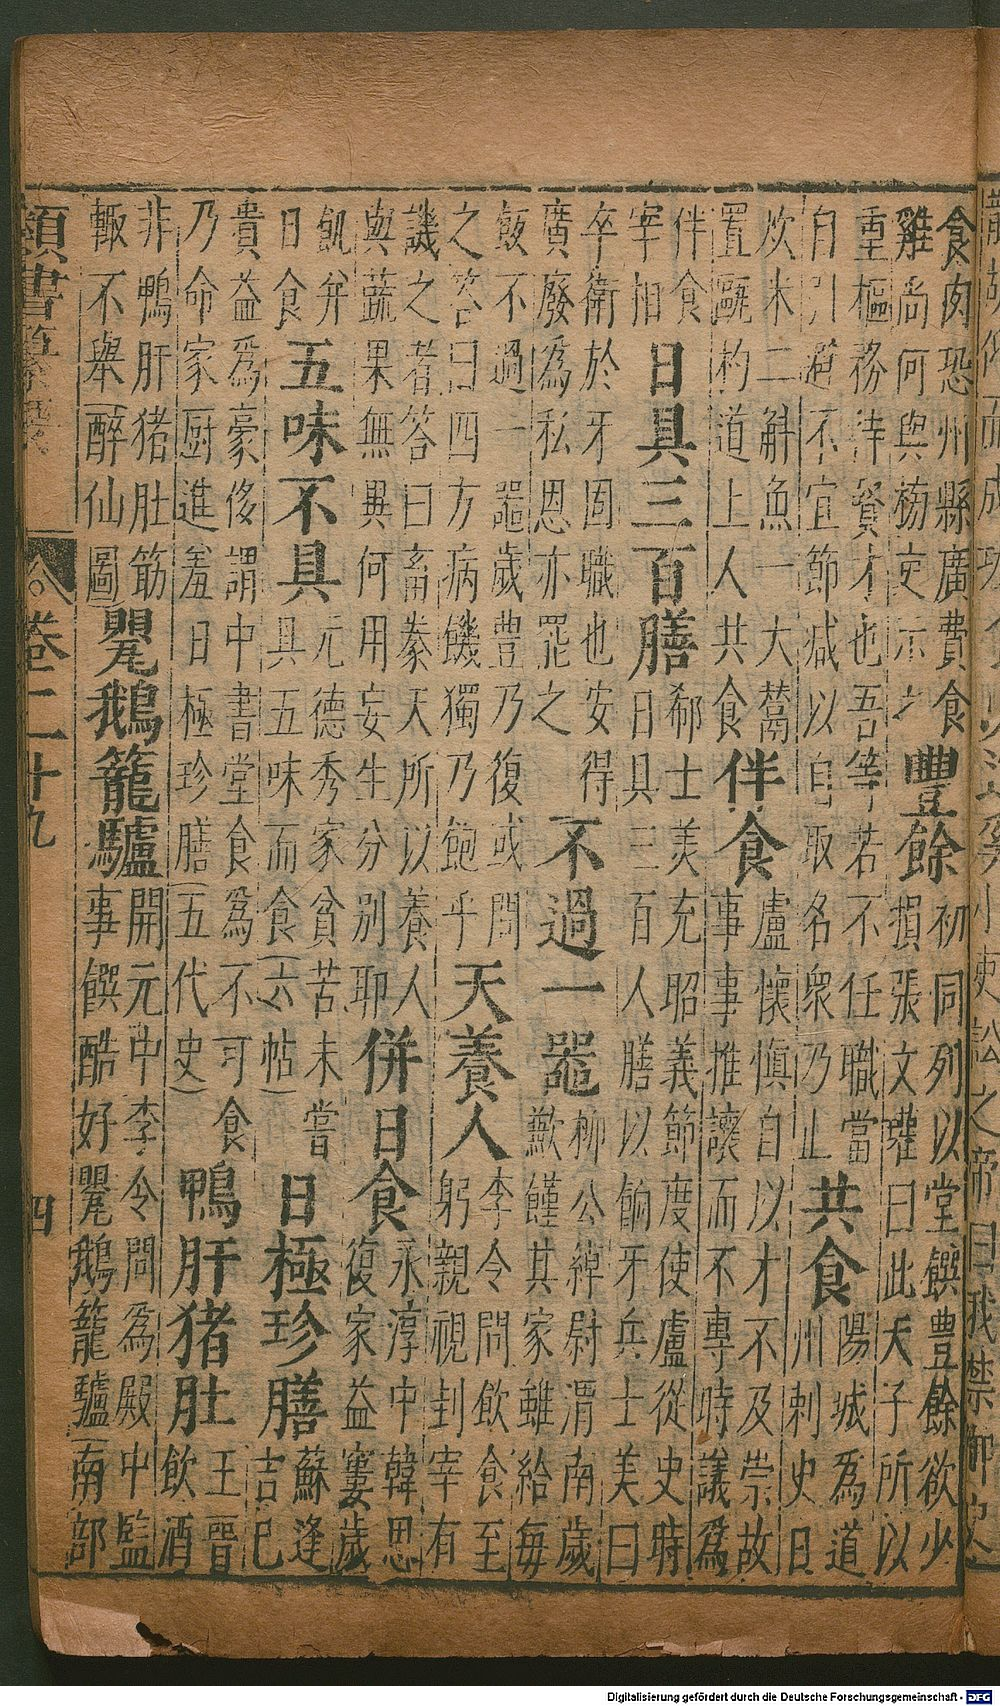 食肉恐州縣廣費食
雞尚何與榜定示之
豐餘
初同列以堂饌豊餘欲少
損張文瓘曰此天子所以
重樞務待賢才也吾等若不任職當
自引避不宜節减以自取名衆乃止
共食
陽城爲道
州刺史日
炊米二斛魚一大鬵
置甌杓道上人共食
伴食
盧懷愼自以才不及崇故
事事推讓而不專時議爲
伴食
宰相
日具三百膳
郗士美充昭義節度使盧從史時
日具三百人膳以餉牙兵士美曰
卒衛於牙固職也安得
廣廢爲私恩亦罷之
不過一噐
柳公綽尉渭南歲
歉饉其家雖給每
飯不過一噐歲豊乃復或問
之答曰四方病饑獨乃飽乎
天養人
李令問飲食至
躬親視刲宰有
譏之者答曰畜豢天所以養人
與蔬果無異何用妄生分别耶
併日食
永淳中韓思
復家益窶歲
飢弁
日食
五味不具
元德秀家貧苦未嘗
具五味而食(六帖)
日極珍膳
蘇逢
吉已
貴益爲豪侈謂中書堂食爲不可食
乃命家厨進羞日極珍膳(五代史)
鴨肝猪肚
王晋
飲酒
非鴨肝猪肚筋
輙不舉(醉仙圖)
甖鵝籠驢
開元中李令問爲殿中監
事饌酷好甖鵝籠驢(南部
類書纂要 卷二十九 四
Digitalisierung gefördert durch die Deutsche Forschungsgemeinschaft - DFG